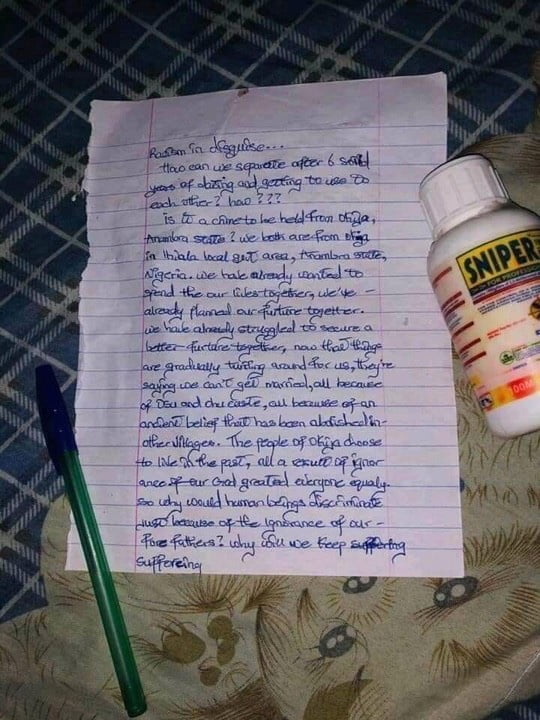 Racism in disguise...
How can we separate after 6 solid
years of dating and getting to use to
each other? how???
is it a crime to be held from Okija,
Anambra state? we both are from Okija
in Ihiala local govt area, Anambra state,
Nigeria. we have already wanted to
spend the our lives together, we've -
already planned our furture together.
we have already struggled to secure a
better furture together, now that things
are gradually turning around for us, they're
saying we can't get married, all because
of OSU and ohu caste, all because of an
ancient belief that has been abolished in-
other villages. The people of Okija choose
to live in the past, all a result of ignor
ance of our God greated everyone equaly.
so why would human beings discriminate
just because of the ignorance of our -
fore fathers? why will we keep suffering
suffereing
SNIPER
100M